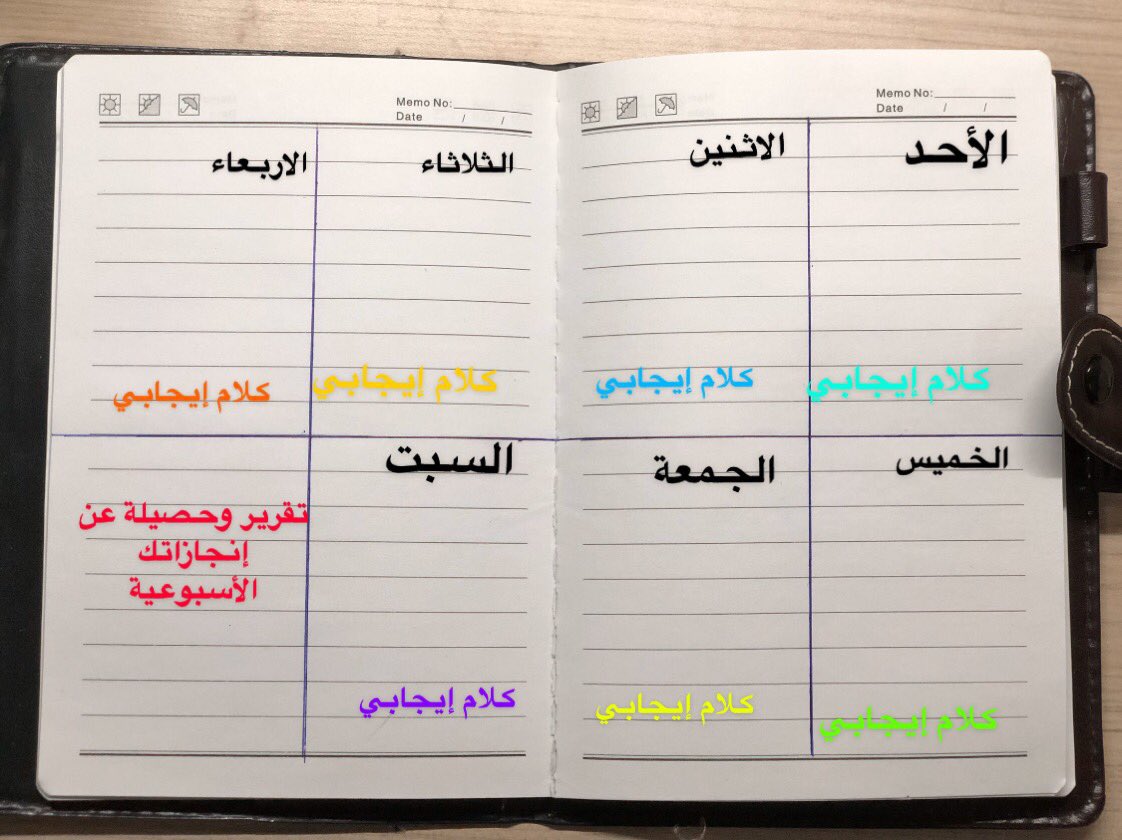 Memo No:
Date / /
الأحد
كلام إيجابي
الاثنين
كلام إيجابي
Memo No:
Date / /
الثلاثاء
كلام إيجابي
الاربعاء
كلام إيجابي
الخميس
كلام إيجابي
الجمعة
كلام إيجابي
السبت
كلام إيجابي
تقرير وحصيلة عن
إنجازاتك
الأسبوعية